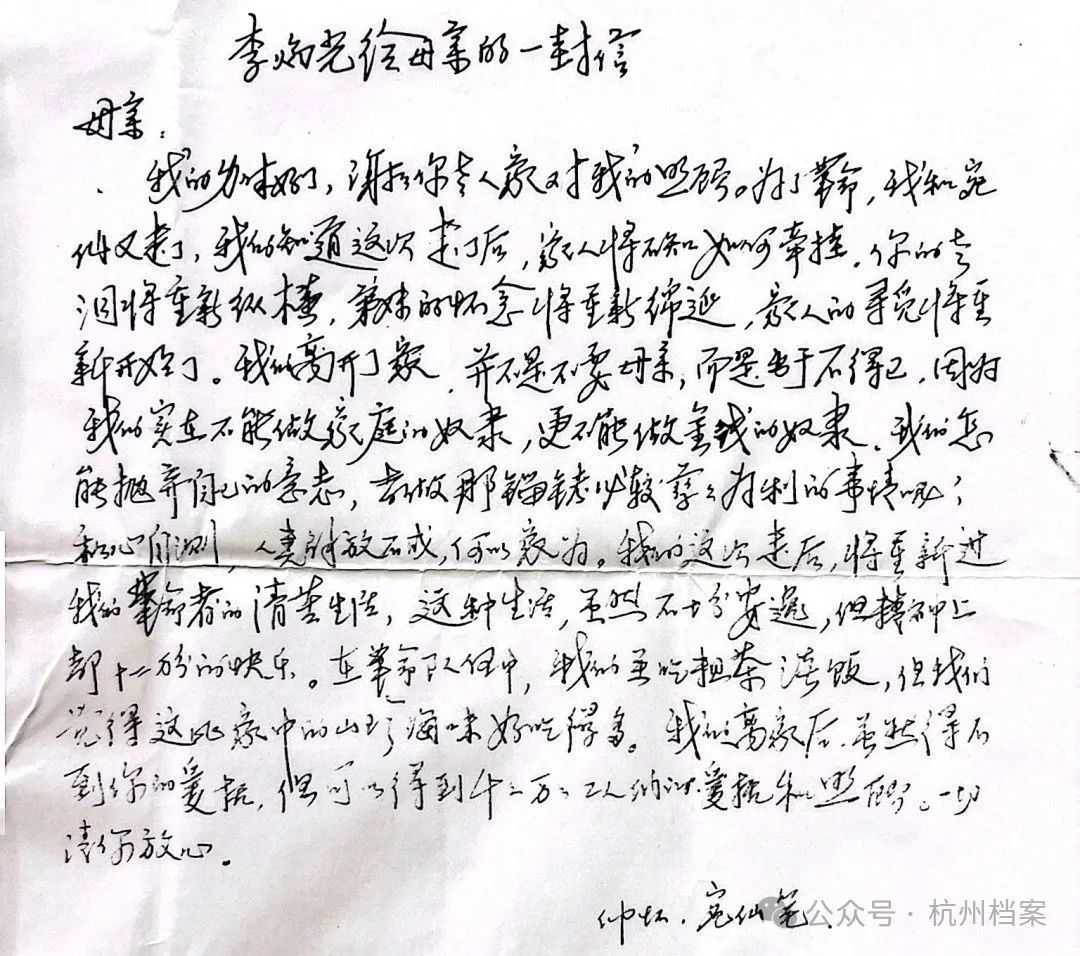 李炳光给母亲的一封信
母亲：
我的身体好了，谢谢你老人家对我们的照顾。为了革命，我和宛
仙又走了，我们知道这次走了后，家人将不知如何牵挂，你的老
泪将重新纵横，弟妹的怀念将重新绵延，家人的寻觅将重
新开始了。我们离开了家，并不是不要母亲，而是出于不得已，因为
我们实在不能做家庭的奴隶，更不能做金钱的奴隶，我们怎
能抛弃自己的意志，去做那锱铢必较孳々为利的事情呢；
私心自测，人寰解放不成，何以家为。我们这次走后，将重新过
我们革命者的清苦生活，这种生活，虽然不十分安逸，但精神上
却十二分的快乐。在革命队伍中，我们虽吃粗茶淡饭，但我们
觉得这比家中的山珍海味好吃得多。我们离家后，虽然得不
到你的爱抚，但可以得到千々万々工人们的爱抚和照顾。一切
请你放心。
仲怀．宛仙笔．
公众号·杭州档案